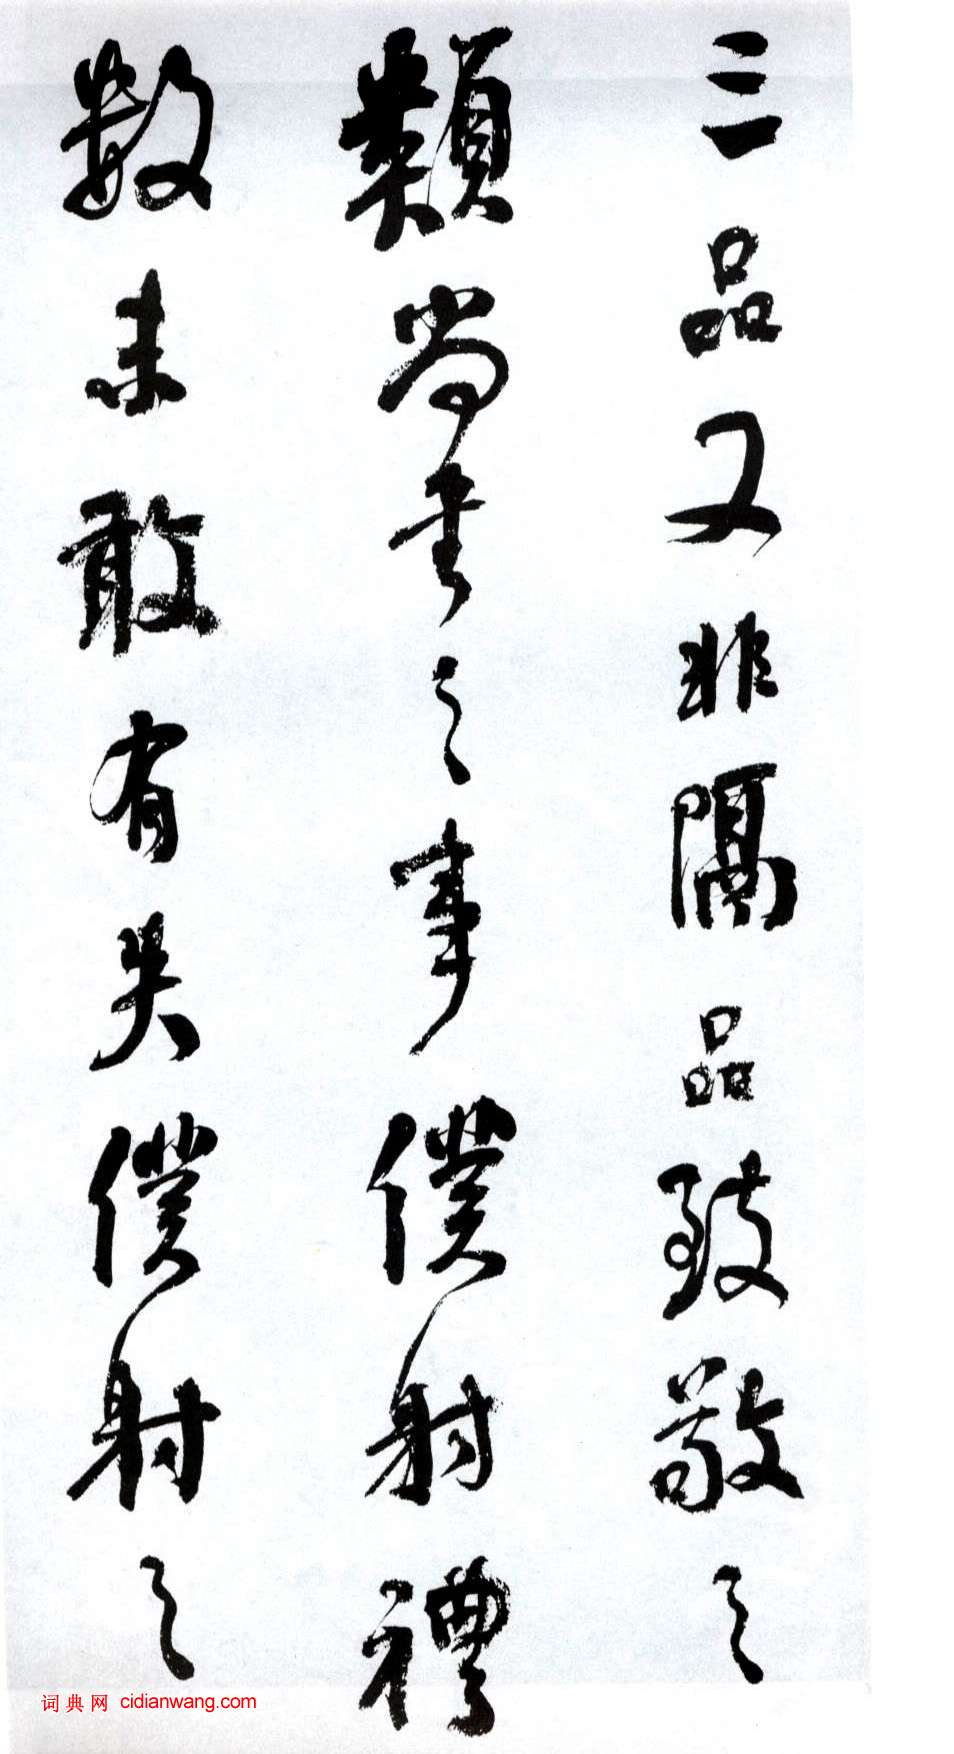 三品又非隔品致敬之
類尚書之事僕射禮
數未敢有失僕射之
词典网 cidianwang.com